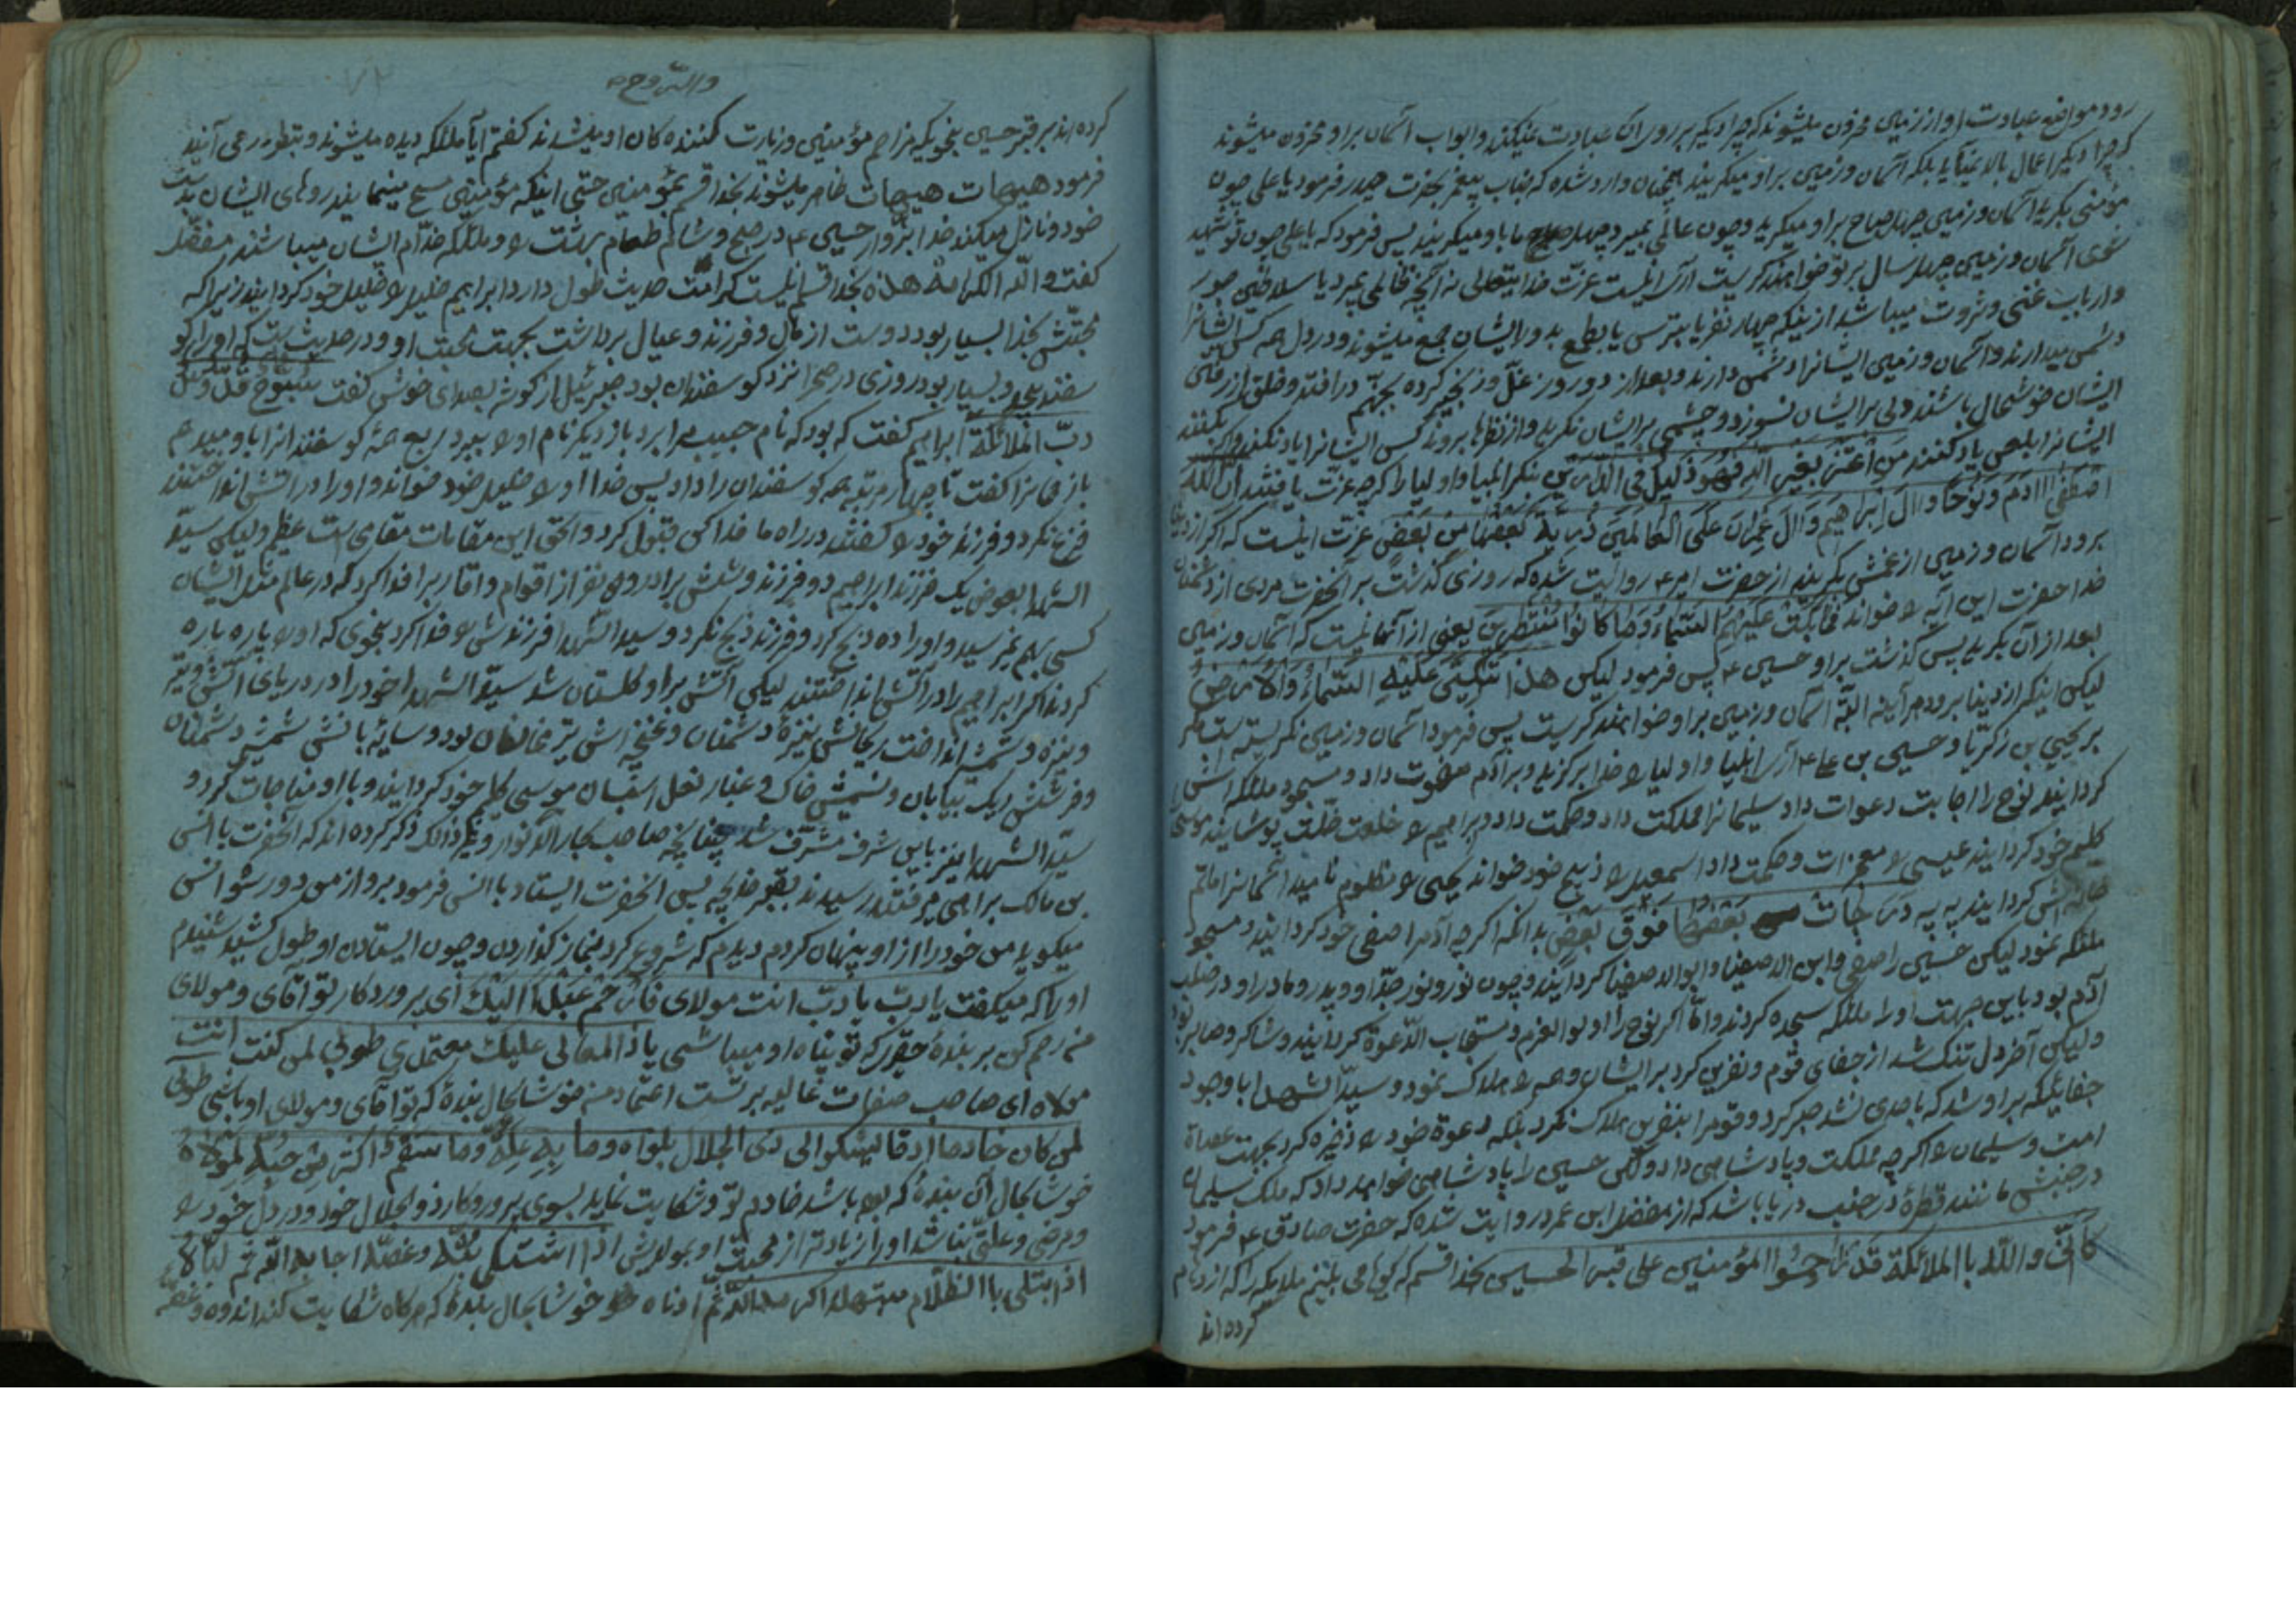 رود مواضع عبادت او از زمین محزون میشوند که چرا دیگر بر روی ان عبادت نمیکند و ابواب آسمان برا و محزون میشوند
که چرا دیگر اعمال بالا نمیآید بلکه آسمان و زمین برا و میگریند همچنان وارد شده که جناب پیغمبر بحضرت حیدر فرمود یا علی چون
مؤمنی بمیرد آسمان و زمین چهل صباح برا و میگرید و چون عالمی بمیرد چهل ماه باو میگریند پس فرمود که یا علی چون تو شهید
شوی آسمان و زمین چهل سال بر تو خواهند گریست آری اینست عزت خدایتعالی نه آنچه ظالمی بمیرد یا سلاطین جور
و ارباب غنی و ثروت میباشد از اینکه چهار نفر یا بترسی یا بطمع بدور ایشان جمع میشوند و در دل همه کس ایشانرا
دشمن میدارند و آسمان و زمین ایشانرا دشمن دارند و بعد از دو روز غل و زنجیر کرده بجهنم در افتند و خلق از
ایشان خوشحال باشند دلی بر ایشان نسوزد و چشمی بر ایشان نگرید و از نظرها بروند کسی ایشانرا یاد نکند و اگر کنند
ایشانرا بلعن یاد کنند من اعتز بغیر الله فهو ذلیل فی الدارین بنگر انبیا و اولیا را که چه عزت یافتند ان الله
اصطفی ادم و نوحا و ال ابراهیم و ال عمران علی العالمین ذریة بعضها من بعض عزت اینست که اگر از دنیا
برود آسمان و زمین از غمش بگریند از حضرت امیر ع روایت شده که روزی گذشت بر آنحضرت مردی از دشمنان
خدا حضرت این آیه را خواند فما بکت علیهم السماء و ما کانوا منتظرین یعنی از آنها نیست که آسمان و زمین
بعد از آن بگرید پس گذشت براو حسین ع پس فرمود لیکن هذا تبکی علیه السماء و الارض
لیکن اینکه از دنیا برود هر آینه البته آسمان و زمین براو خواهند گریست پس فرمود آسمان و زمین نگریسته است مگر
بر یحیی بن زکریا و حسین بن علی ع آری انبیا و اولیا را خدا برگزید و بر آدم صفوت داد و مسجود ملائکه اش
گردانید نوح را اجابت دعوات داد سلیمانرا مملکت داد و حکمت داد و ابراهیم را خلعت خلت پوشانید موسی
کلیم خود گردانید عیسی را معجزات و حکمت داد اسمعیل را ذبیح خود خواند یحیی را مظلوم نامید
گردانید به درجات بعضها فوق بعض بدانکه اگر چه آدم را صفی خود گردانید و مسجود
ملائکه نمود لیکن حسین را صفی و ابن الاصفیا و ابوالاصفیا گردانید و چون نور و نور جد او و پدر و مادر او در صلب
آدم بود باین جهت او را ملائکه سجده کردند و اما اگر نوح را اولوالعزم و مستجاب الدعوة گردانید و شاکر و صابر بود
ولیکن آخر دل تنگ شد از جفای قوم و نفرین کرد بر ایشان و همه را هلاک نمود و سید الشهدا با وجود
جفائیکه براو شد که باحدی نشد صبر کرد و قومرا بنفرین هلاک نکرد بلکه دعوة خود را ذخیره کرد بجهت عصاة
امت و سلیمان را اگر چه مملکت و پادشاهی داد ولکن حسین را پادشاهی خواهد داد که ملک سلیمان
در جنبش مانند قطرۀ در جنب دریا باشد که از مفضل ابن عمر روایت شده که حضرت صادق ع فرمود
کانی والله باالملائکة قد زاحموا المؤمنین علی قبر الحسین بخدا قسم که گویا می بینم ملائکه را که ازدحام
کرده اند
والتروح
۷۲
کرده اند بر قبر حسین بنحویکه مزاحم مؤمنین و زیارت کننده کان او میشدند گفتم آیا ملائکه دیده میشوند و بنظر درمی آیند
فرمود هیهات هیهات ظاهر میشوند بخدا قسم بمؤمنین حتی اینکه مؤمنین مسح مینمایند روهای ایشان بدست
خود و نازل میکند خدا بزوار حسین ع در صبح و شام طعام بهشت را و ملائکه خدام ایشان میباشند مفضل
گفت والله الکرامة هذه بخدا قسم اینست کرامت حدیث طول دارد ابراهیم خلیل را خلیل خود گردانید زیرا که
محبتش بخدا بسیار بود دوست از مال و فرزند و عیال برداشت بجهت محبت او و در حدیث است که او را گو
سفند بسیار بود روزی در صحرا نزد گوسفندان بود جبرئیل از گوشه بصدای خوش گفت سبوح قدوس
رب الملائکة ابراهیم گفت که بود که نام حبیب مرا برد باز دیگر نام او را ببرد ربع همۀ گوسفندانرا باو میدهم
باز همانرا گفت تا چهار مرتبه همه گوسفندان را داد پس خدا او را خلیل خود خواند و او را در آتش انداختند
فزع نکرد و فرزند خود را در راه ما فدا کن قبول کرد و الحق این مقامات مقامی است عظیم ولیکن سید
الشهدا بعوض یک فرزند ابراهیم دو فرزند و شش برادر و نفر از اقوام و اقارب را فدا کرد که در عالم مثل ایشان
کسی بهم نرسید و او اراده ذبح کرد و فرزند ذبح نکرد و سید الشهدا فرزندش را فدا کرد بنحوی که او را پاره پاره
کردند اگر ابراهیم را در آتش انداختند لیکن آتش براو گلستان شد سید الشهدا خود را در دریای آتش و تیر
و نیزه و شمشیر انداخت ریحانش نیزۀ دشمنان و غنچه اش تیر مخالفان بود و سایه بانش شمشیر دشمنان
و فرشش ریک بیابان و نسیمش خاک و غبار نعل اسبان موسی کلیم خود گردانید و با او مناجات کرد و
سید الشهدا نیز باین شرف مشرف شد چنانچه صاحب بحار الانوار و غیر ذالک ذکر کرده اند که آنحضرت با انس
بن مالک براهی میرفتند رسیدند بقبر خدیجه پس آنحضرت ایستاد با انس فرمود برو از من دور شو انس
میگوید من خود را از او پنهان کردم دیدم که شروع کرد بنماز گذاردن و چون ایستادن او طول کشید شنیدم
او را که میگفت یا رب یا رب انت مولای فارحم عبیدا الیک ای پروردگار تو آقای و مولای
منی رحم کن بر بندۀ حقیر که تو پناه او میباشی یا ذا المعالی علیک معتمدی طوبی لمن کنت انت
مولاه ای صاحب صفات عالیه برتست اعتماد من خوشا بحال بندۀ که تو آقای و مولای او باشی طوبی
لمن کان خادما ارقا یشکوا الی ذی الجلال بلواه و ما به علة و ما سقم اکثر من حبه لمولاه
خوشا بحال آن بندۀ که بوده باشد خادم تو و شکایت نماید بسوی پروردگار ذوالجلال خود و درد دل خود را
و مرضی و علتی نباشد او را زیادتر از محبت او بمولایش اذا اشتکی بثه و غصته اجابه الله ثم لباه
اذا ابتلی باالظلام مبتهلا اکرمه الله ثم ادناه خوشا بحال بندۀ که هرگاه شکایت کند اندوه و غصه